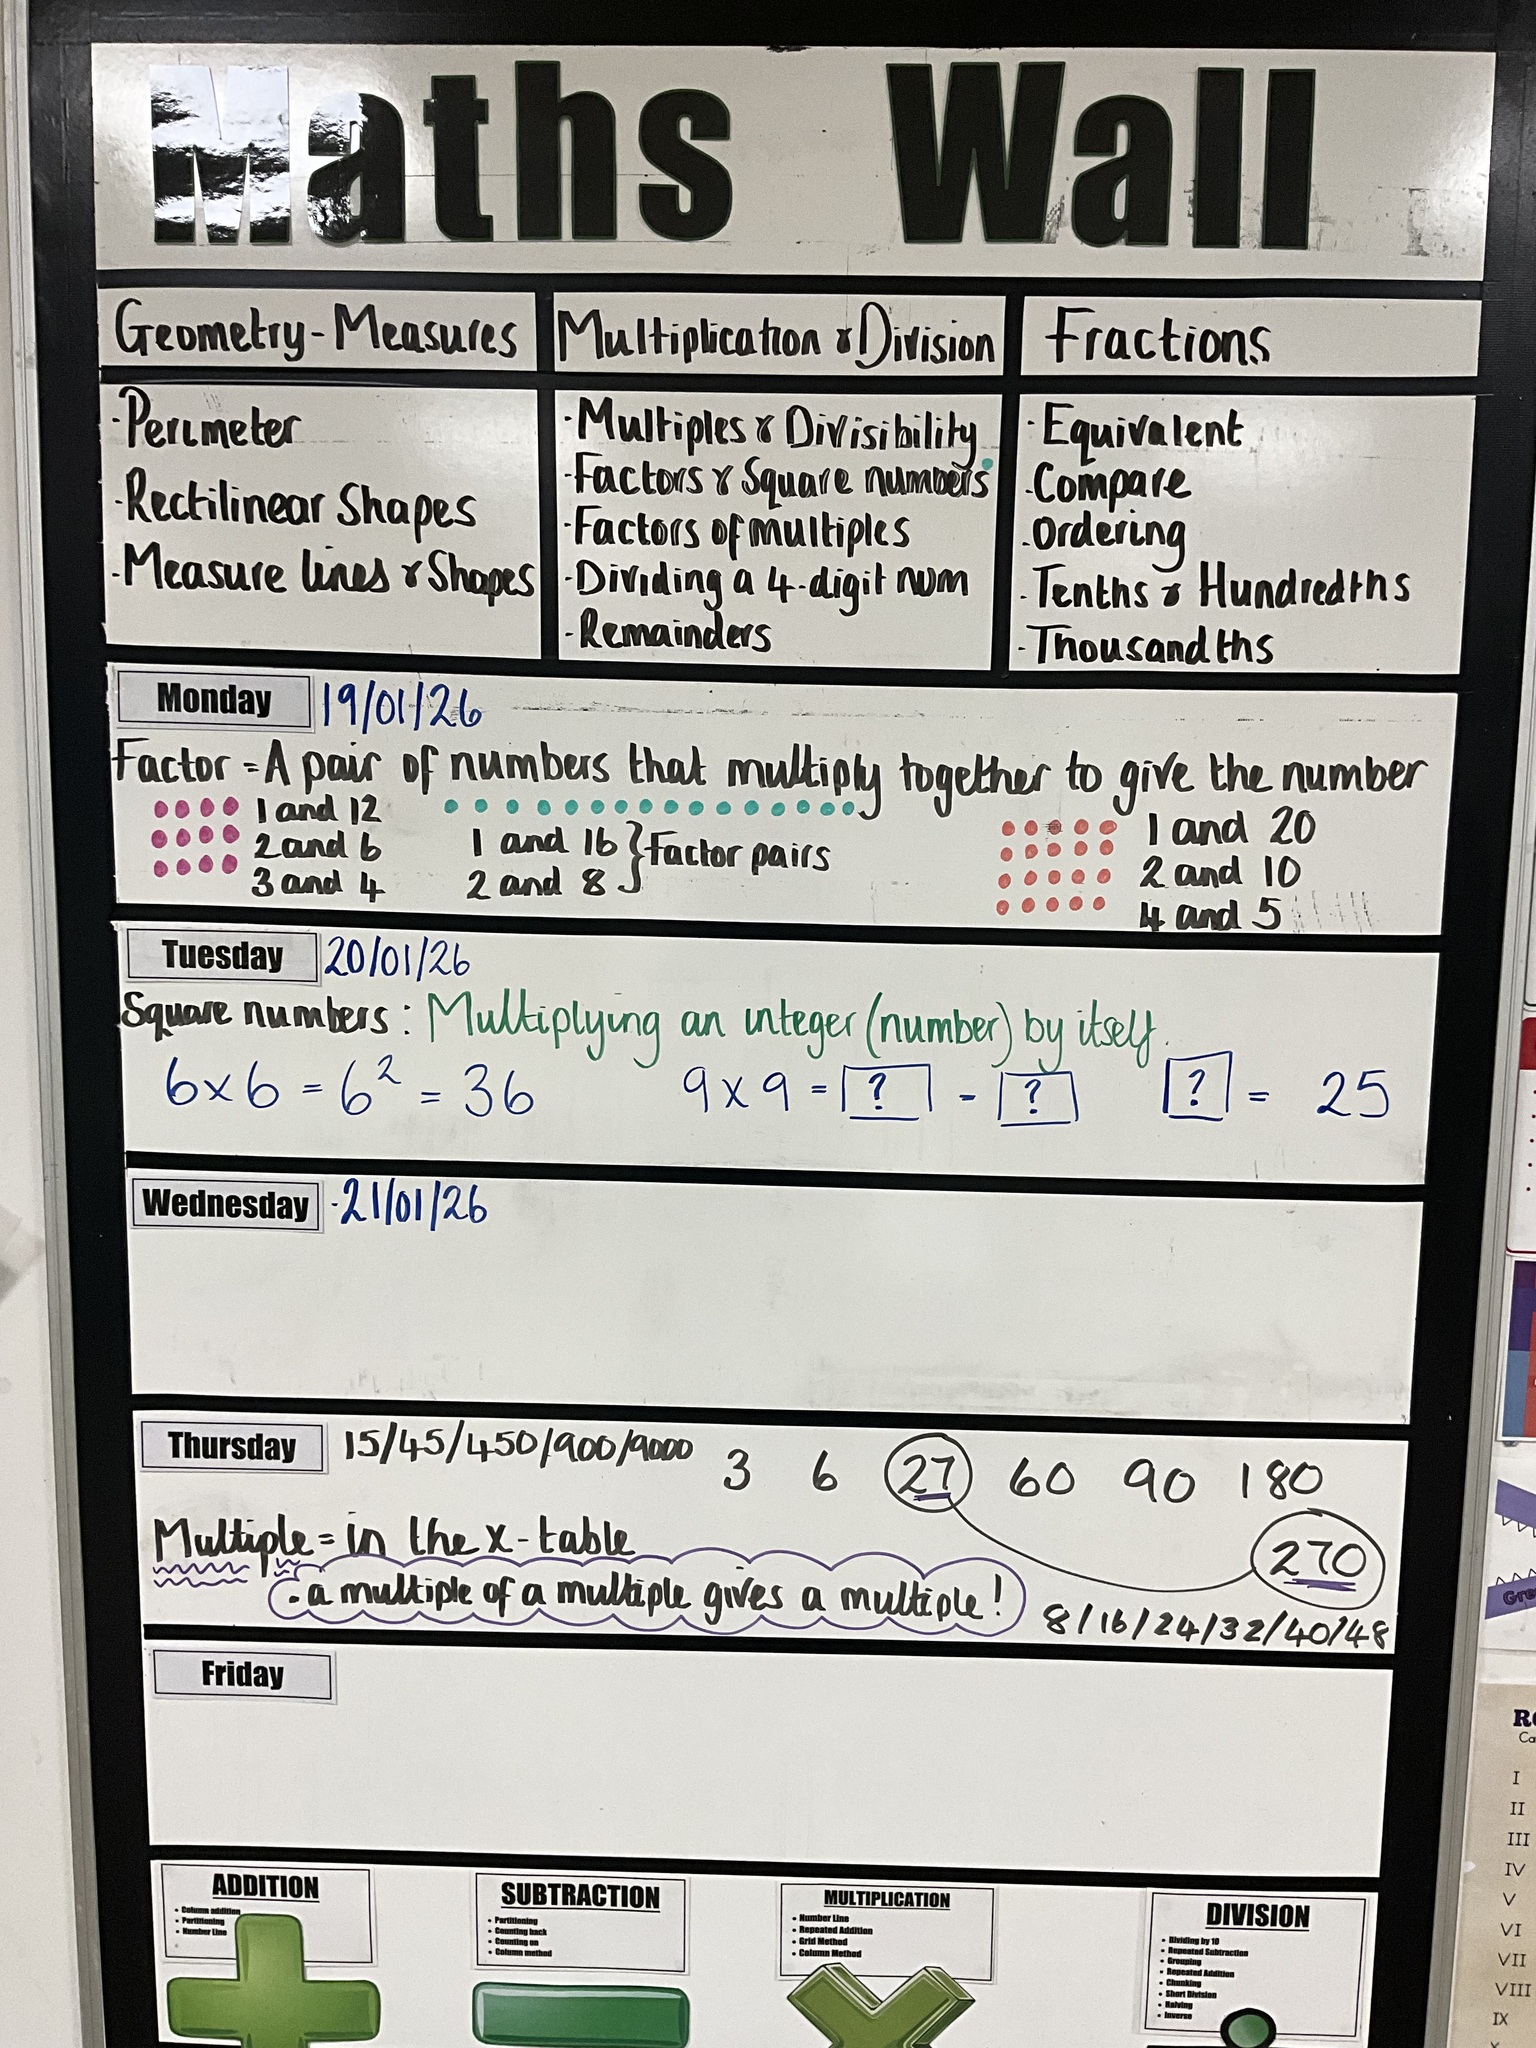 Maths Wall
Geometry-Measures
·Perimeter
·Rectilinear Shapes
·Measure lines & Shapes
Multiplication & Division
·Multiples & Divisibility
·Factors & Square numbers
·Factors of multiples
·Dividing a 4-digit num
·Remainders
Fractions
·Equivalent
·Compare
·Ordering
·Tenths & Hundredths
·Thousandths
Monday 19/01/26
Factor = A pair of numbers that multiply together to give the number
1 and 12
2 and 6
3 and 4
1 and 16
2 and 8
} Factor pairs
1 and 20
2 and 10
4 and 5
Tuesday 20/01/26
Square numbers: Multiplying an integer (number) by itself.
6 x 6 = 6² = 36
9 x 9 = ? = ?
? = 25
Wednesday ·21/01/26
Thursday 15/45/450/900/9000
3 6 27 60 90 180
270
Multiple = in the x-table
·a multiple of a multiple gives a multiple!
8/16/24/32/40/48
Friday
ADDITION
• Column addition
• Partitioning
• Number Line
SUBTRACTION
• Partitioning
• Counting back
• Counting on
• Column method
MULTIPLICATION
• Number Line
• Repeated Addition
• Grid Method
• Column Method
DIVISION
• Dividing by 10
• Repeated Subtraction
• Grouping
• Repeated Addition
• Chunking
• Short Division
• Halving
• Inverse
I
II
III
IV
V
VI
VII
VIII
IX